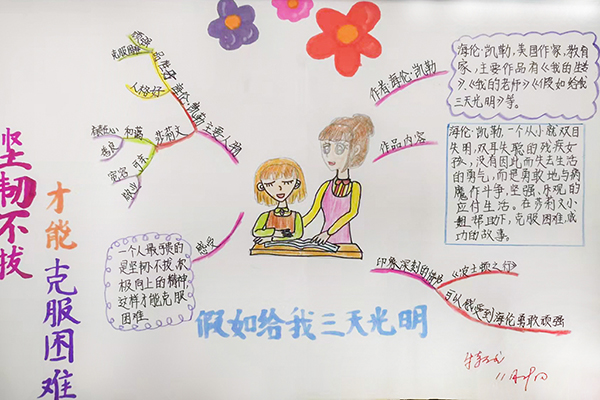 坚韧不拔
才能
克服困难
假如给我三天光明
作者海伦·凯勒
海伦·凯勒,美国作家,教育
家,主要作品有《我的生活》
、《我的老师》《假如给我
三天光明》等。
作品内容
海伦·凯勒,一个从小就双目
失明,双耳失聪的残疾女
孩,没有因此而失去生活
的勇气,而是勇敢地与病
魔作斗争,坚强、乐观的
应付生活。在莎莉文小
姐帮助下,克服困难,成
功的故事。
印象深刻的情节
《波士顿之行》
可以感受到海伦勇敢顽强
主要人物
海伦·凯勒
坚强
克服困难
莎莉文
和蔼
宽容
感受
一个人最重要的
是坚韧不拔,积
极向上的精神
这样才能克服
困难。